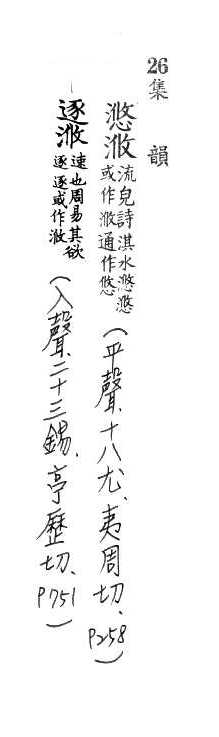 26集韻
滺浟
流皃詩淇水滺滺
或作浟通作悠
(平聲、十八尤、夷周切、P258)
逐浟
速也周易其欲
逐逐或作浟
(入聲、二十三錫、亭歷切、P751)